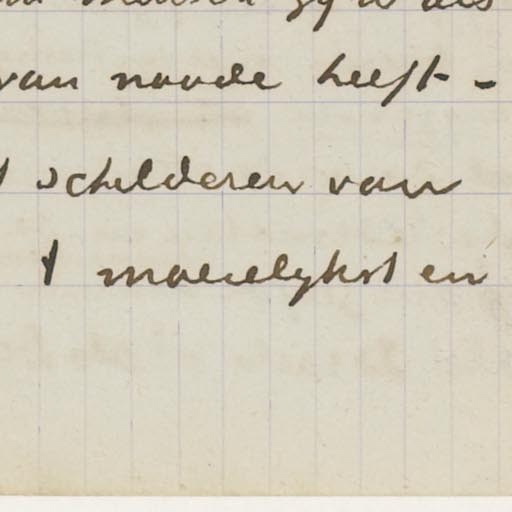 van noode heeft -
schilderen van
't moeielykst en